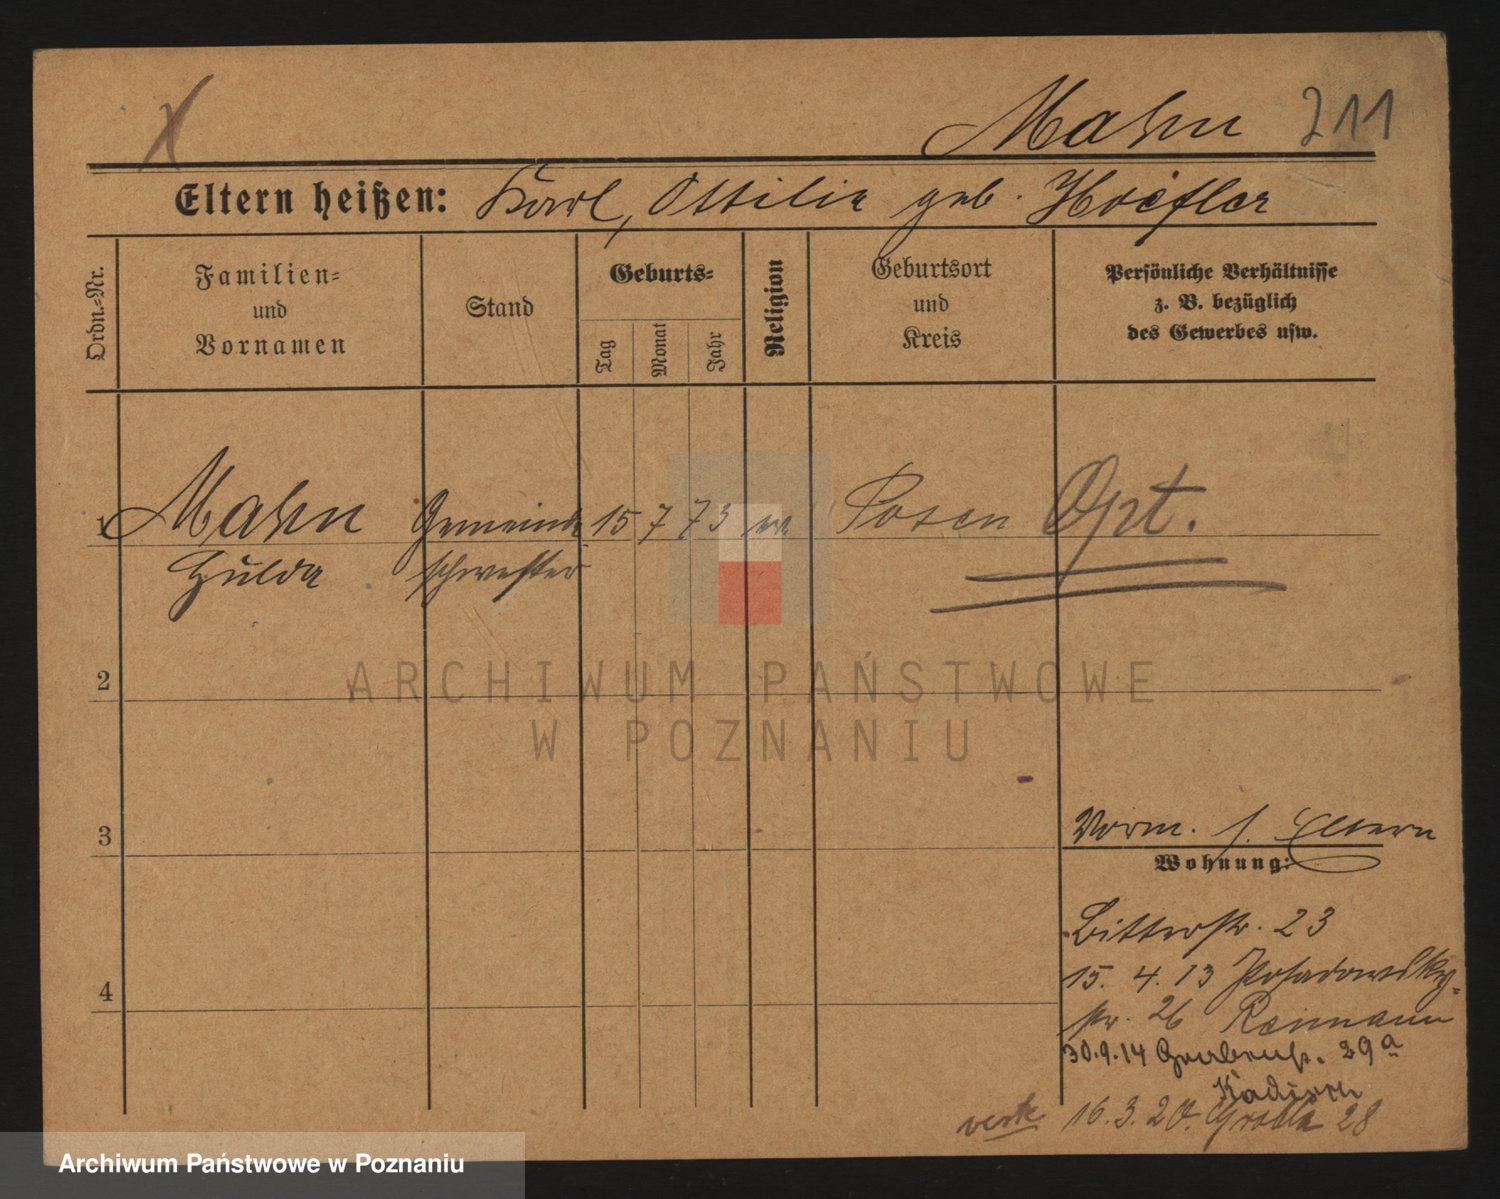 Mahn 211
Eltern heißen: Karl, Ottilie geb. Hoefler
Ordn.-Nr.
Familien-
und
Vornamen
Stand
Geburts-
Tag
Monat
Jahr
Religion
Geburtsort
und
Kreis
Persönliche Verhältnisse
z. B. bezüglich
des Gewerbes usw.
1 Mahn Gemeinde 15 7 73 ev Posen Opt.
Hulda schwester
2
ARCHIWUM PAŃSTWOWE
W POZNANIU
3
Vorm. s. Eltern
Wohnung:
Bitterstr. 23
4
15. 4. 13 Posadowsky-
str. 26 Reimann
30.9.14 Grabenstr. 29a
Kadisch
verte 16.3.20. Grobla 28
Archiwum Państwowe w Poznaniu